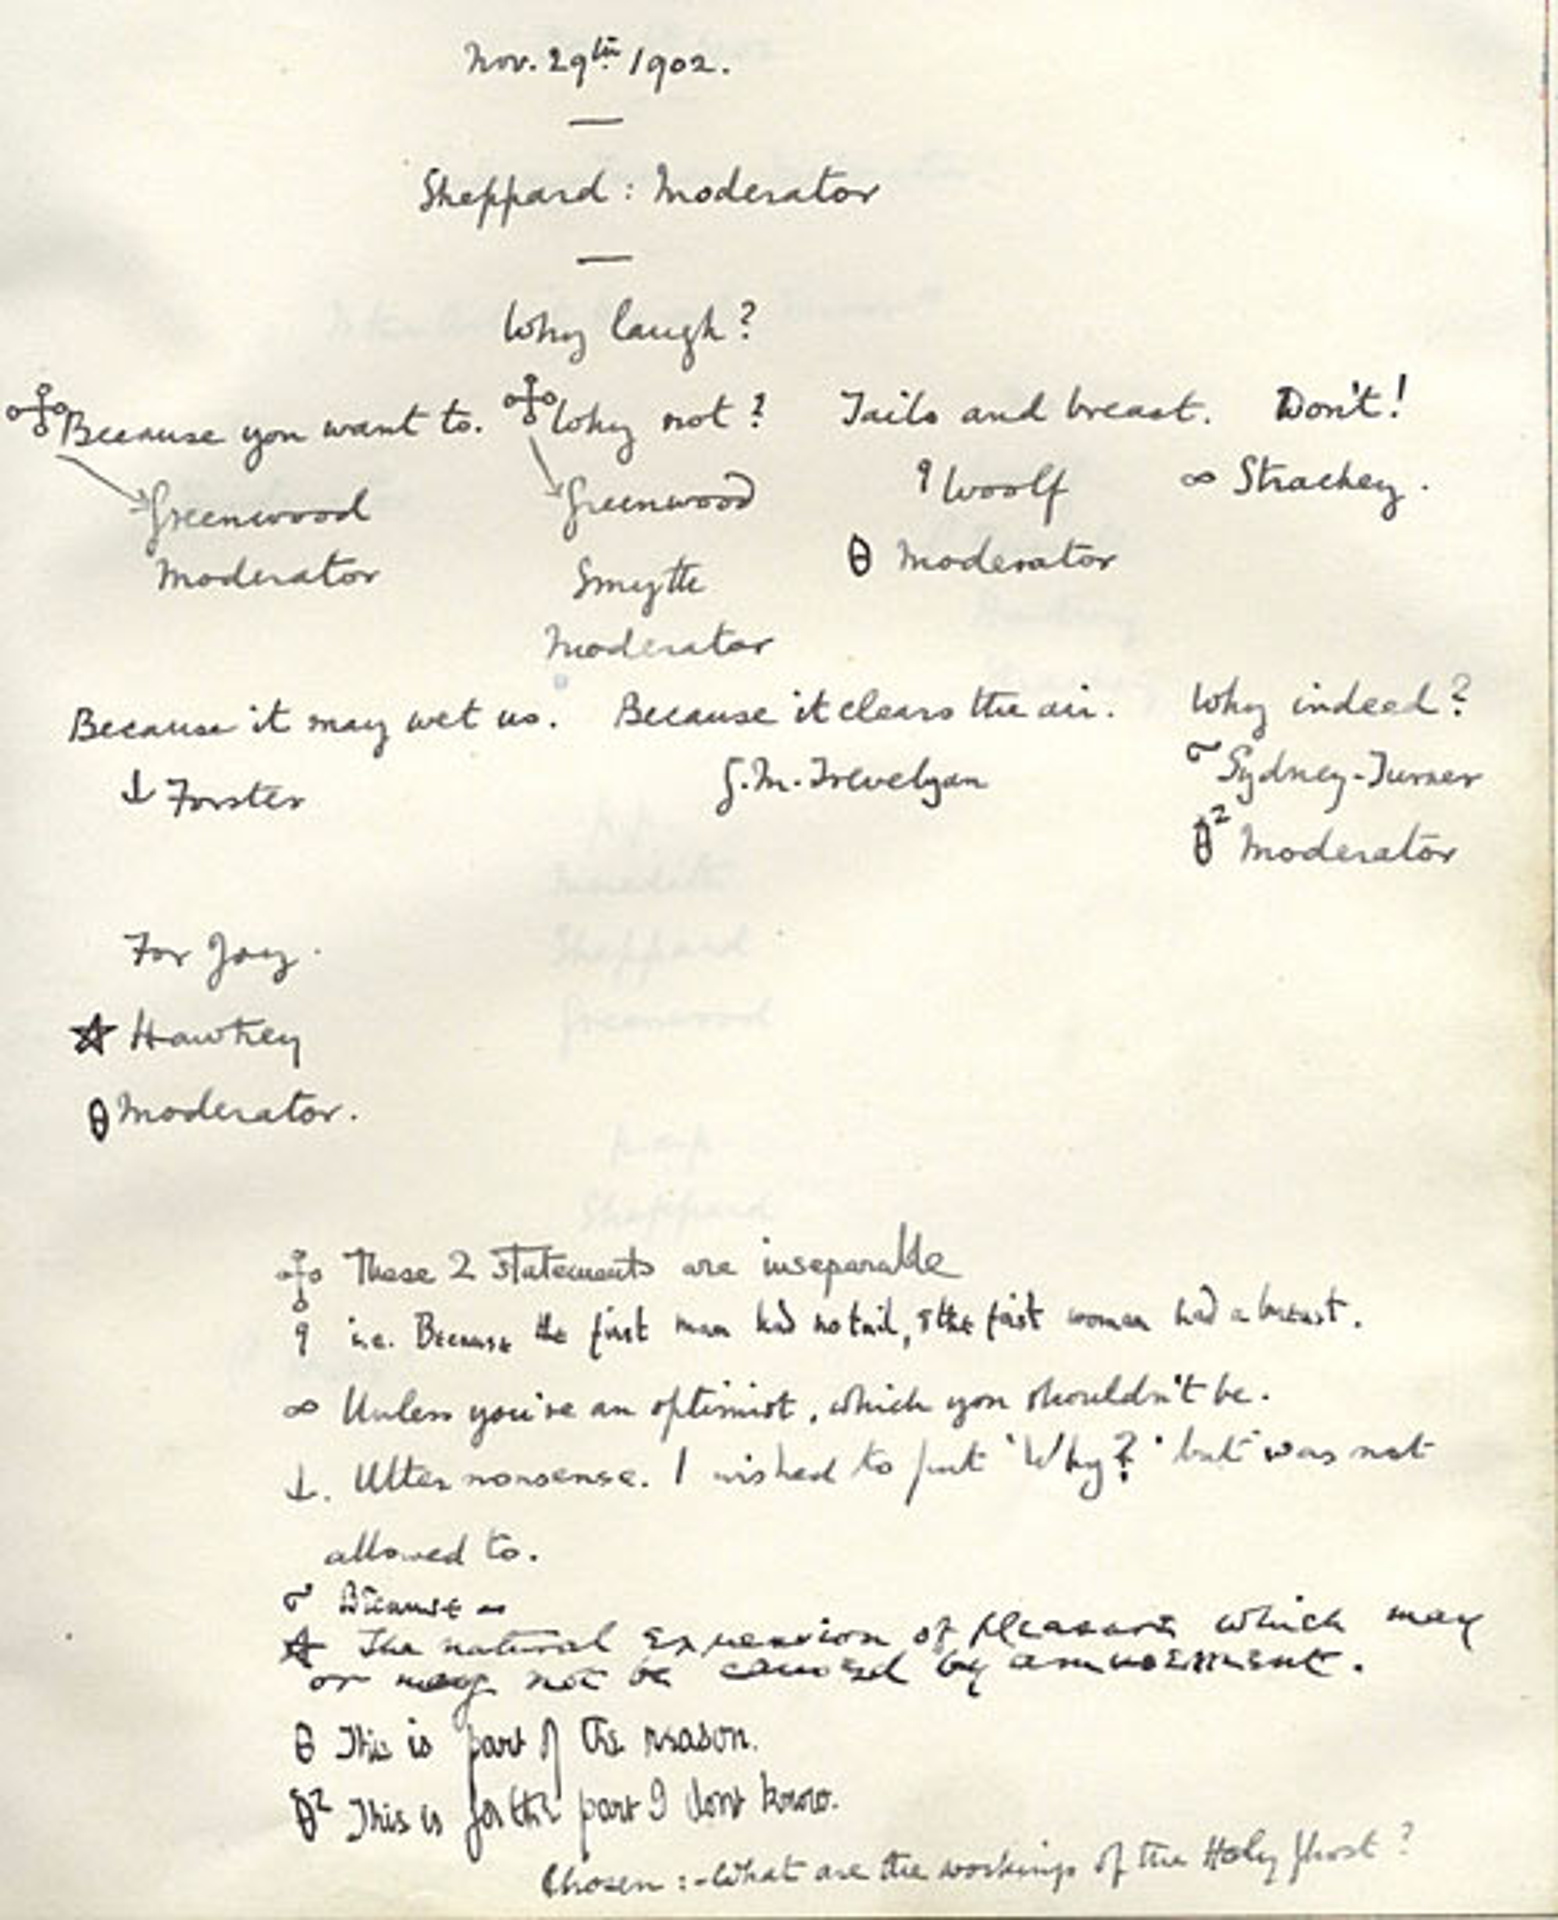 Nov. 29th 1902.
Sheppard : Moderator
Why laugh?
Because you want to. Why not? Tails and breast. Don't!
Greenwood Greenwood ♀ Woolf ∞ Strachey.
Moderator Smyth θ Moderator
Moderator
Because it may wet us. Because it clears the air. Why indeed?
↓ Forster G. M. Trevelyan σ Sydney-Turner
θ² Moderator
For Joy.
☆ Hawtrey
θ Moderator.
These 2 statements are inseparable
♀ i.e. Because the first man had no tail, & the first woman had a breast.
∞ Unless you're an optimist, which you shouldn't be.
↓. Utter nonsense. I wished to put 'Why?' but was not
allowed to.
σ Because —
☆ The natural expression of pleasure which may
or may not be caused by amusement.
θ This is part of the reason.
θ² This is for the part I dont know.
Chosen :- What are the workings of the Holy Ghost?
Sheppard
Greenwood
Sheppard